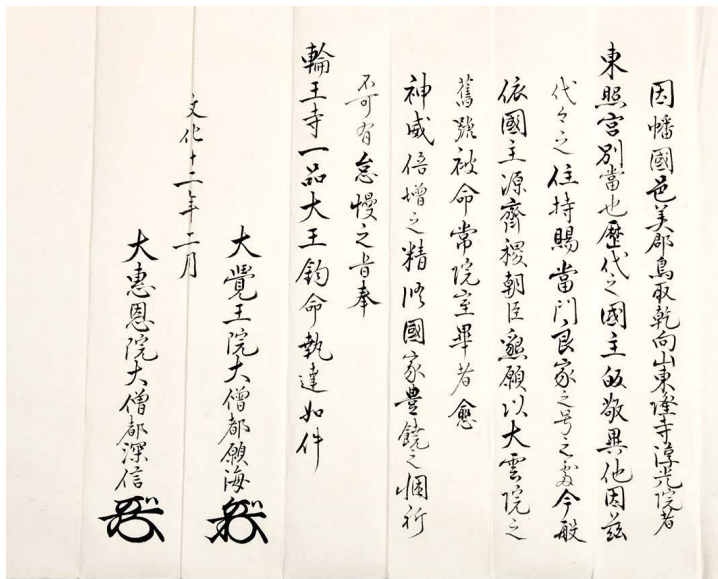 因幡國邑美郡鳥取乾向山東隆寺淳光院者
東照宮別當也歴代之國主㱕敬異他因茲
代々之住持賜當門良家之号之處今般
依國主源齊稷朝臣懇願以大雲院之
舊號被命常院室畢者愈
神威倍增之精修國家豊饒之悃祈
不可有怠慢之旨奉
輪王寺一品大王鈞命執達如件
大覺王院大僧都願海
文化十二年二月
大惠恩院大僧都深信